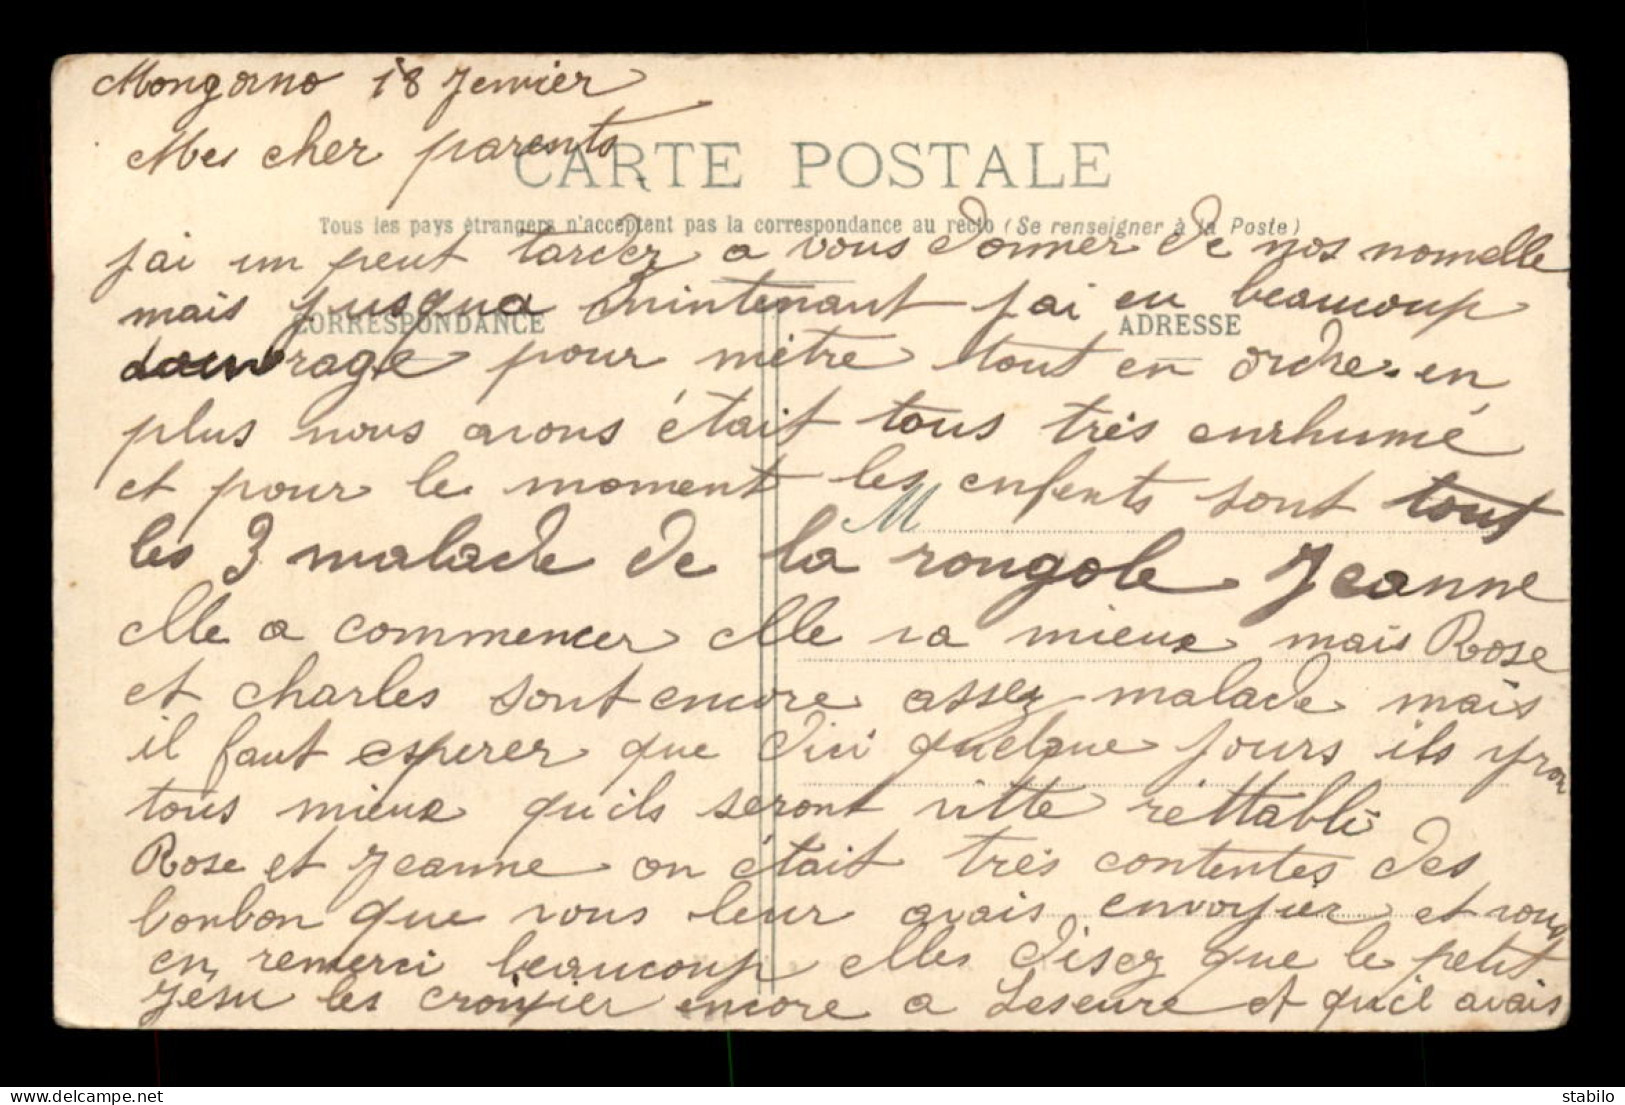 Mongorno 18 Jenvier
Mes cher parents
CARTE POSTALE
Tous les pays étrangers n'acceptent pas la correspondance au recto (Se renseigner à la Poste)
jai un peut tardez a vous donner de nos nomelle
mais jusqua mintenant jai eu beaucoup
CORRESPONDANCE
ADRESSE
douvrage pour mètre tout en ordre. en
plus nous avons était tous très enrhumé
et pour le moment les enfents sont tous
M
les 3 malade de la rongole Jeanne
elle a commencer elle va mieux mais Rose
et charles sont encore assez malade mais
il faut esperer que dici quelque jours ils yron
tous mieux quils seront vitte réttabli
Rose et Jeanne on était très contentes des
bonbon que vous leur avais envoyier et vous
en remerci beaucoup elles disez que le petit
Jésu les croiyier encore a Leseure et quil avais
stabilo